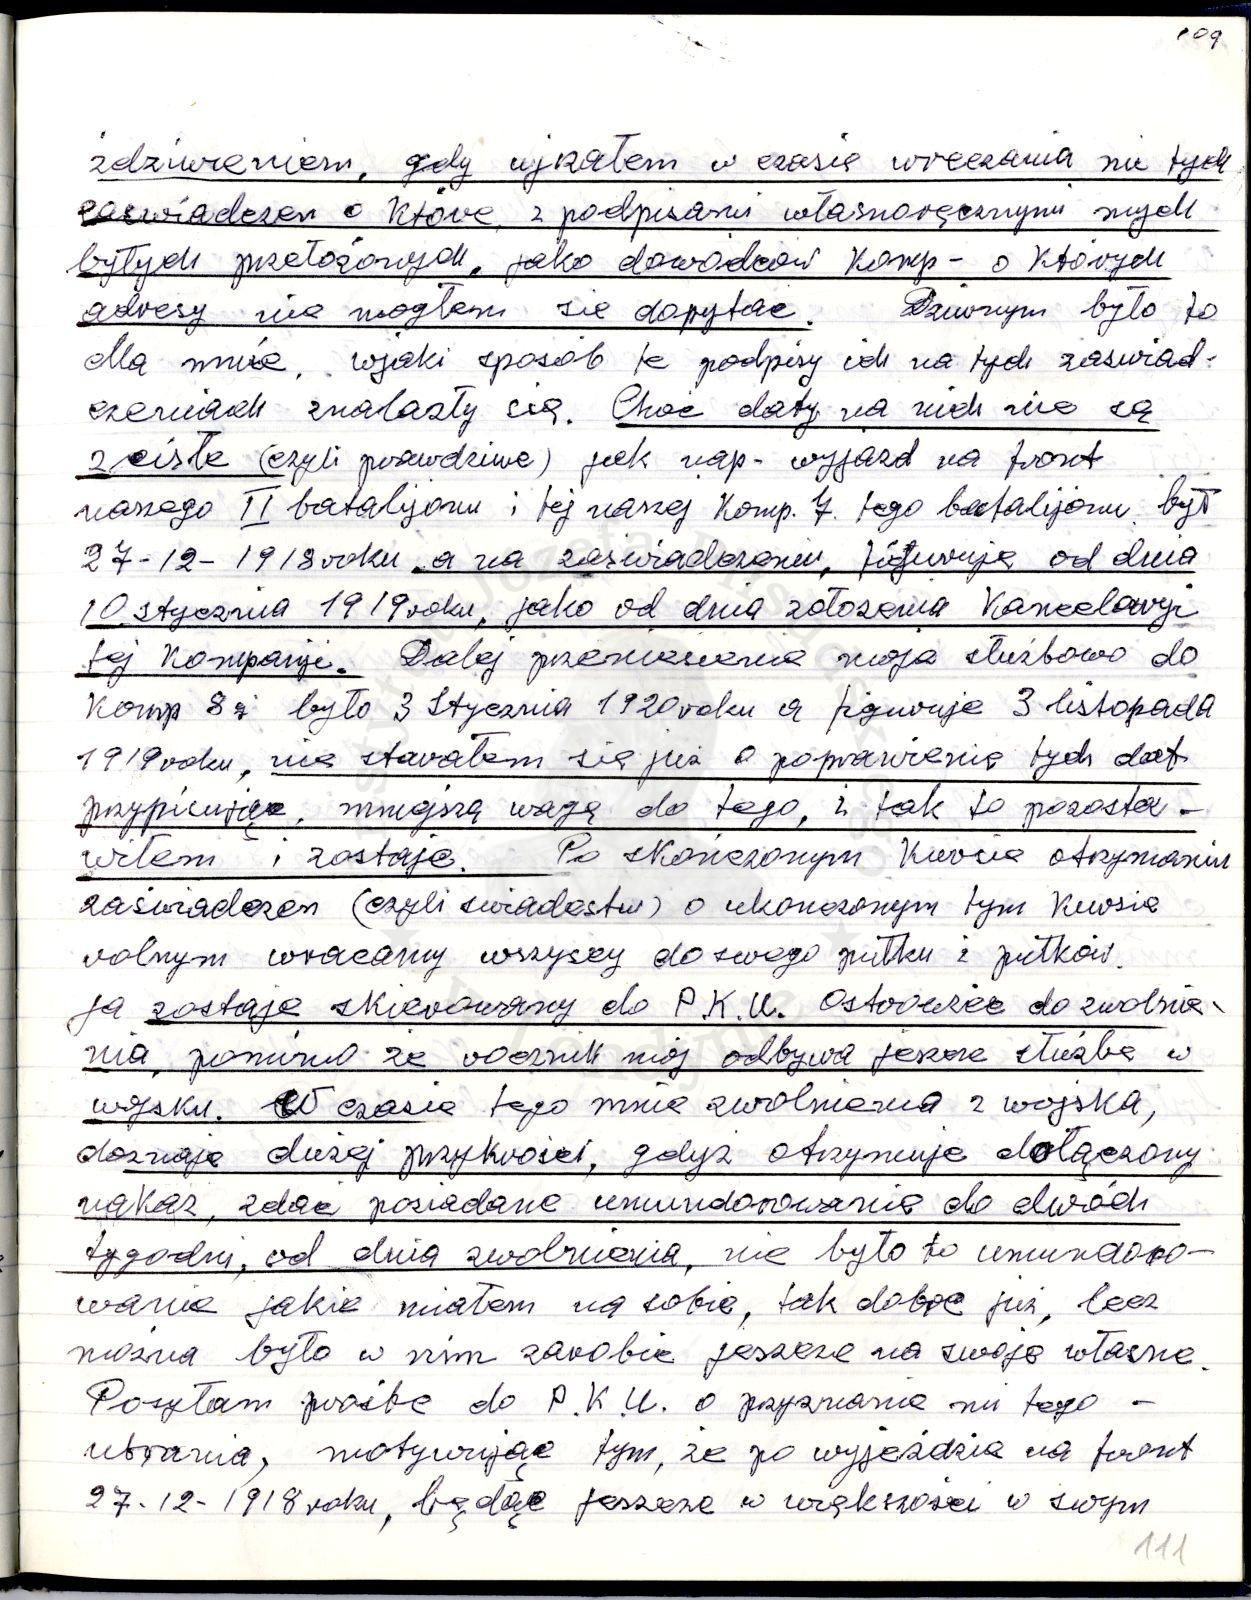 109
zdziwieniem, gdy ujrzałem w czasie wręczania mi tych
zaświadczen o które, z podpisami własnoręcznymi mych
byłych przełożonych, jako dowódców Komp- o których
adresy nie mogłem się dopytać. Dziwnym było to
dla mnie, wjaki sposób te podpisy ich na tych zaswiad-
czeniach znalazły się. Choć daty na nich nie są
zciste (czyli prawdziwe) jak nap- wyjazd na front
naszego II batalijonu i tej naszej Komp. 7. tego batalijonu był
27-12-1918 roku a na zaświadczeniu, figuruje od dnia
10 stycznia 1919 roku, jako od dnia założenia Kancelaryi
tej Kompanji. Dalej przeniesienie moja służbowo do
Komp 8ej było 3 Stycznia 1920 roku a figuruje 3 listopada
1919 roku, nie starałem się już o poprawienie tych dat
przypisując, mniejszą wagę do tego, i tak to pozosta-
wiłem i zostaje. Po skończonym Kursie otrzymaniu
zaświadczen (czyli swiadectw) o ukonczonym tym Kursie
rolnym wracamy wszyscy do swego pułku i pułków.
ja zostaję skierowany do P.K.U. Ostrowiec do zwolnie-
nia, pomimo że rocznik mój odbywa jeszcze służbę w
wojsku. W czasie tego mnie zwolnienia z wojska,
doznaję dużej przykrości, gdyż otrzymuje dołączony
nakaz, zdać posiadane umundorowanie do dwóch
tygodni, od dnia zwolnienia, nie było to umundoro-
wanie jakie miałem na sobie, tak dobre już, lecz
można było w nim zarobić jeszcze na swoje własne.
Posyłam prośbe do P.K.U. o przyznanie mi tego -
ubrania, motywując tym, że po wyjeździe na front
27-12-1918 roku, będąc jeszcze w większości w swym
111
Instytut Józefa Piłsudskiego
w Londynie